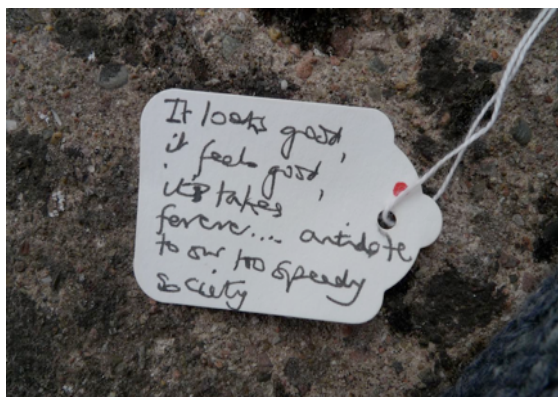 It looks good,
it feels good,
it takes
forever.... antidote
to our too speedy
society